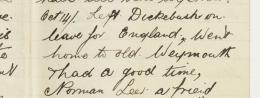 Oct 14/. Left Dickebush on
leave for England, Went
home to old Weymouth
& had a good time,
Norman Lee a friend